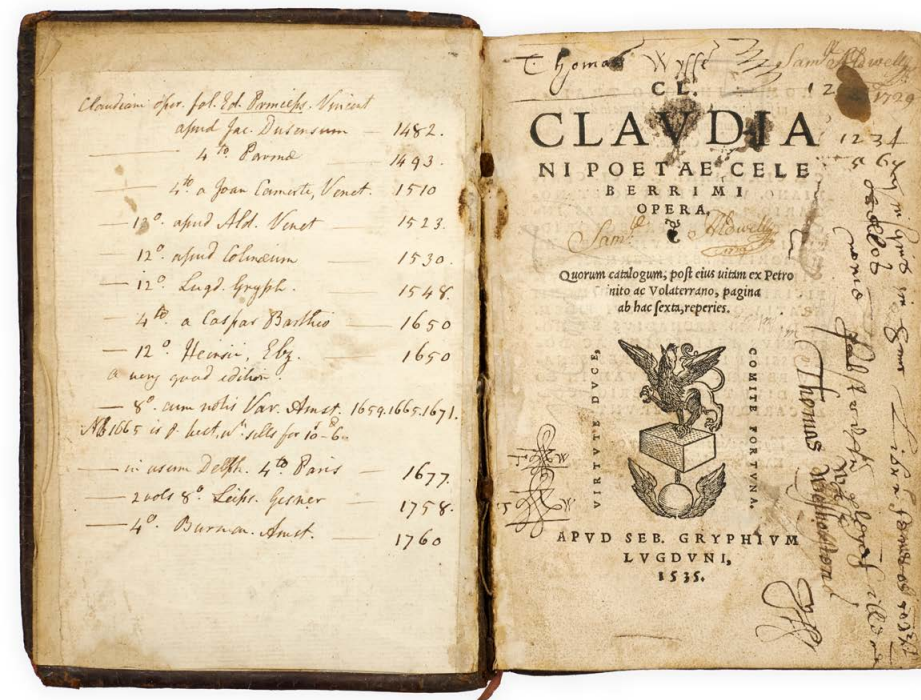 Claudiani oper. fol. Ed. Princeps. Vincent
apud Jac. Dusensum — 1482.
— 4to Parmæ 1493.
— 4to a Joan Camerte, Venet. 1510
— 12o. apud Ald. Venet 1523.
12o. apud Colinæum — 1530.
— 12o. Lugd. Gryph. 1548.
— 4to a Caspar Barthio — 1650
— 12o. Heinsii, Elz. — 1650
a very good edition.
— 8o. cum notis Var. Amst. 1659.1665.1671.
NB 1665 is ye best, wh sells for 10-6
— in usum Delph. 4to Paris — 1677.
— 2 vols 8o. Leips. Gesner — 1758.
— 4o. Burman. Amst. 1760
Thomas Wysse
Saml. Aldwell
1729
CL.
CLAVDIA
NI POETAE CELE
BERRIMI
OPERA.
Saml. Aldwell
Quorum catalogum, post eius uitam ex Petro
nito ac Volaterrano, pagina
ab hac sexta, reperies.
VIRTVTE DVCE,
COMITE FORTVNA.
APVD SEB. GRYPHIVM
LVGDVNI,
1535.
1234
Thomas